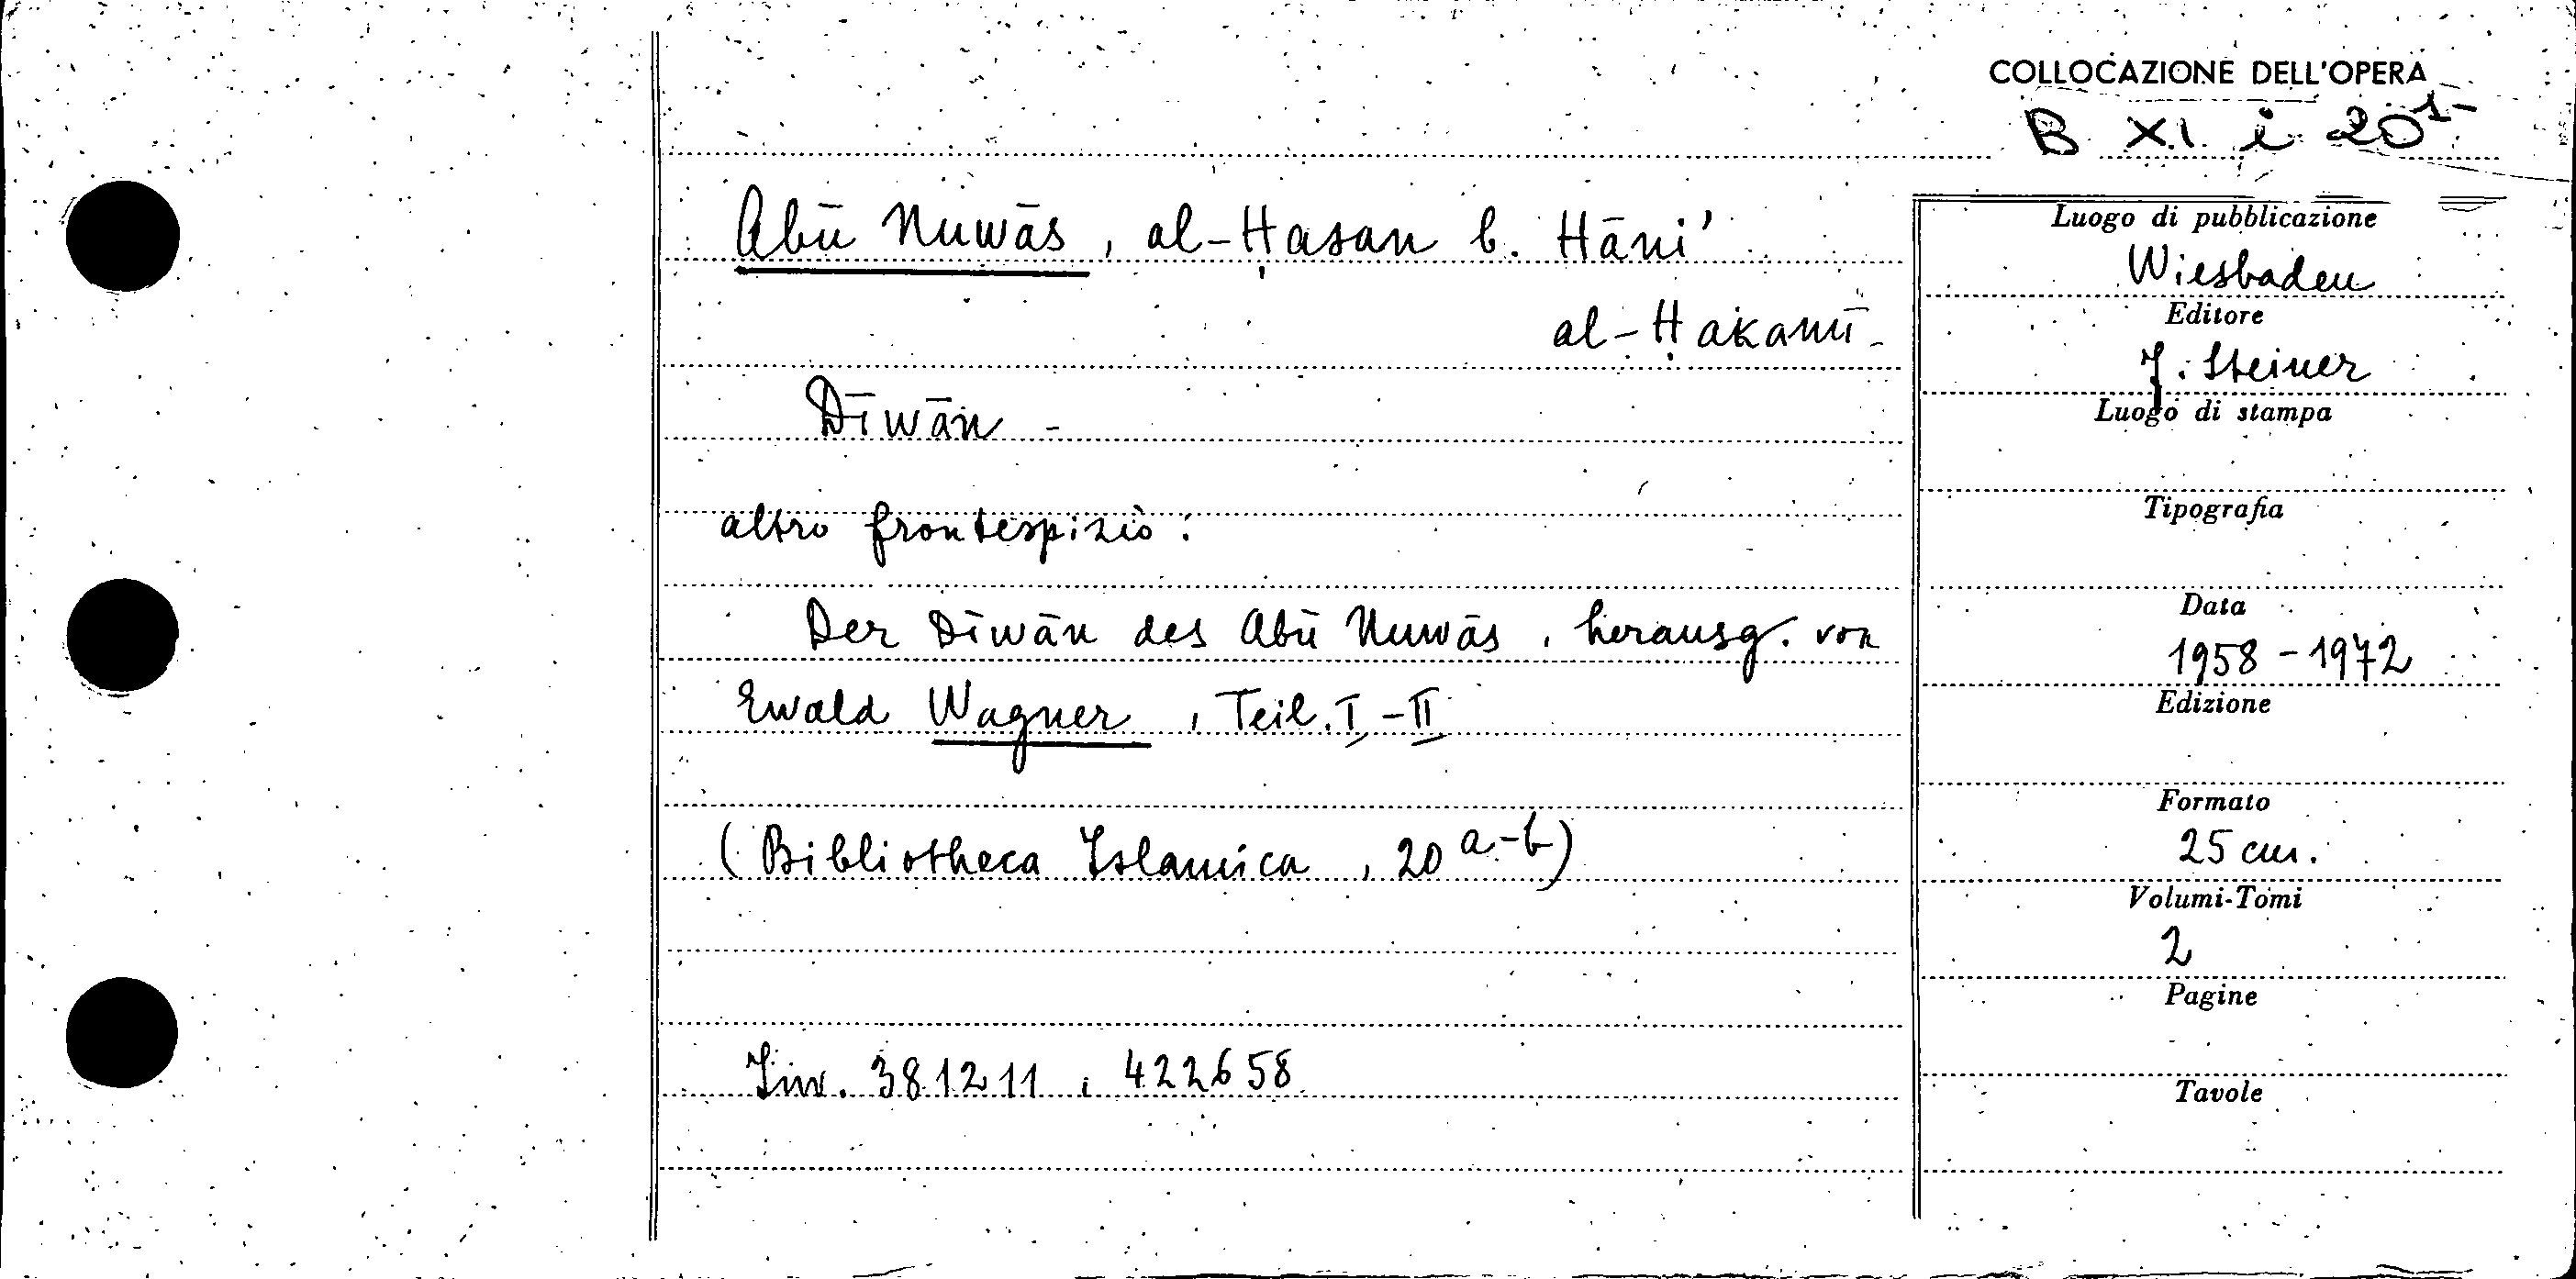 COLLOCAZIONE DELL'OPERA
B XI i 20 1-
Abū Nuwās, al-Ḥasan b. Hāni'
al-Ḥakamī -
Dīwān -
altro frontespizio:
Der Dīwān des Abū Nuwās, herausg. von
Ewald Wagner, Teil. I-II
(Bibliotheca Islamica, 20 a-b)
Inv. 381211, 422658
Luogo di pubblicazione
Wiesbaden
Editore
F. Steiner
Luogo di stampa
Tipografia
Data
1958-1972
Edizione
Formato
25 cm.
Volumi-Tomi
2
Pagine
Tavole